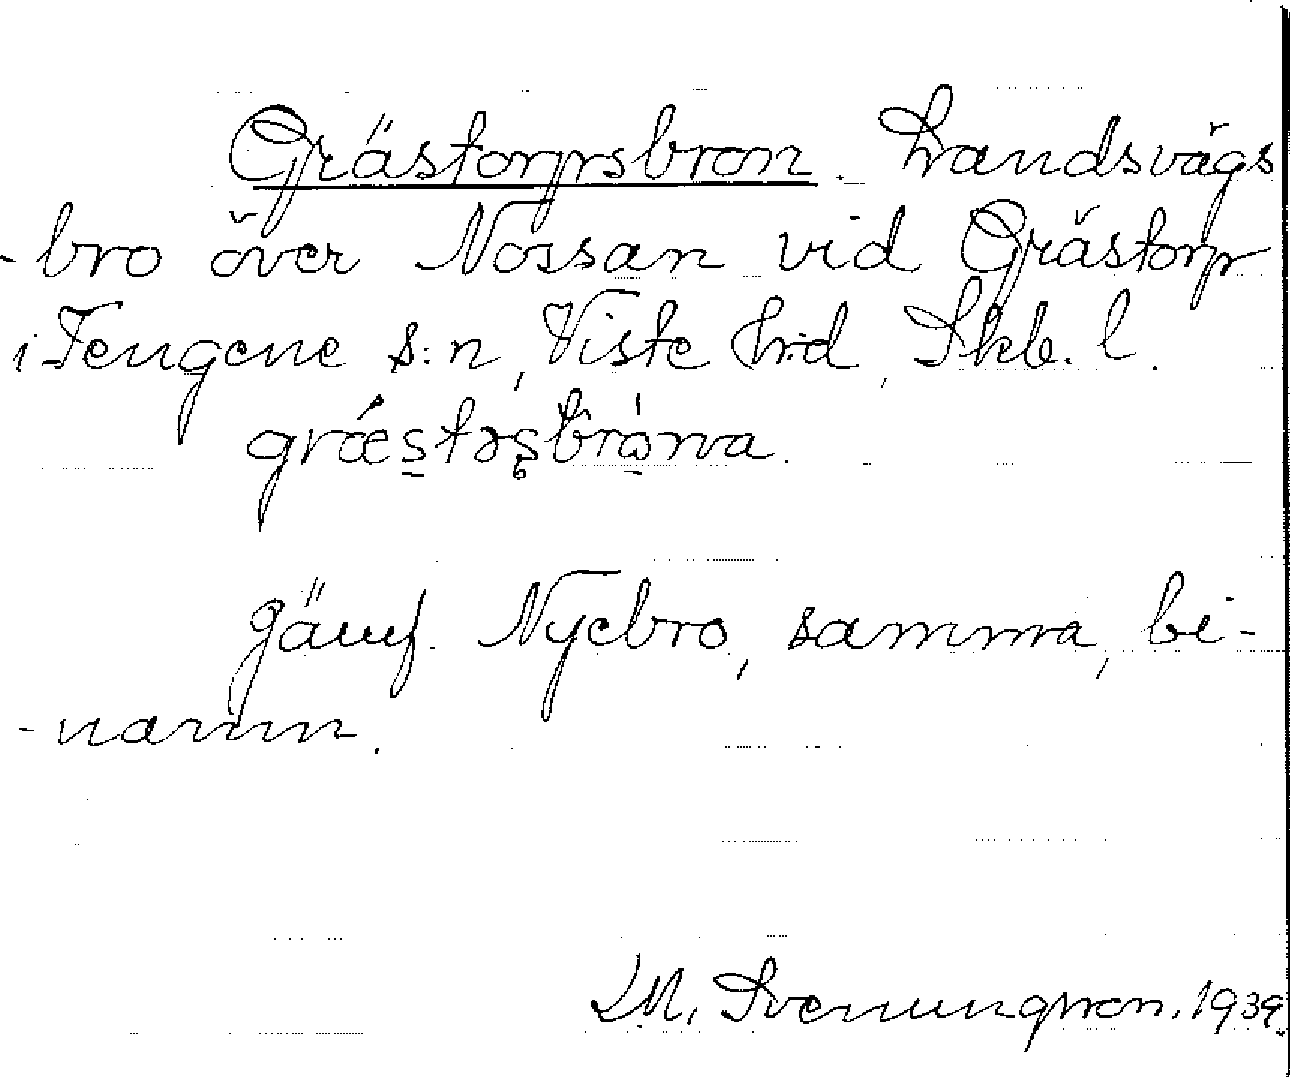 Grästorpsbron. Landsvägs
-bro över Nossan vid Grästorp
i Tengene s:n, Viste h:d, Skb. l.
græ´stəs̨brώna.
Jämf. Nyebro, samma, bi-
-namn.
M. Svenungson. 1939.